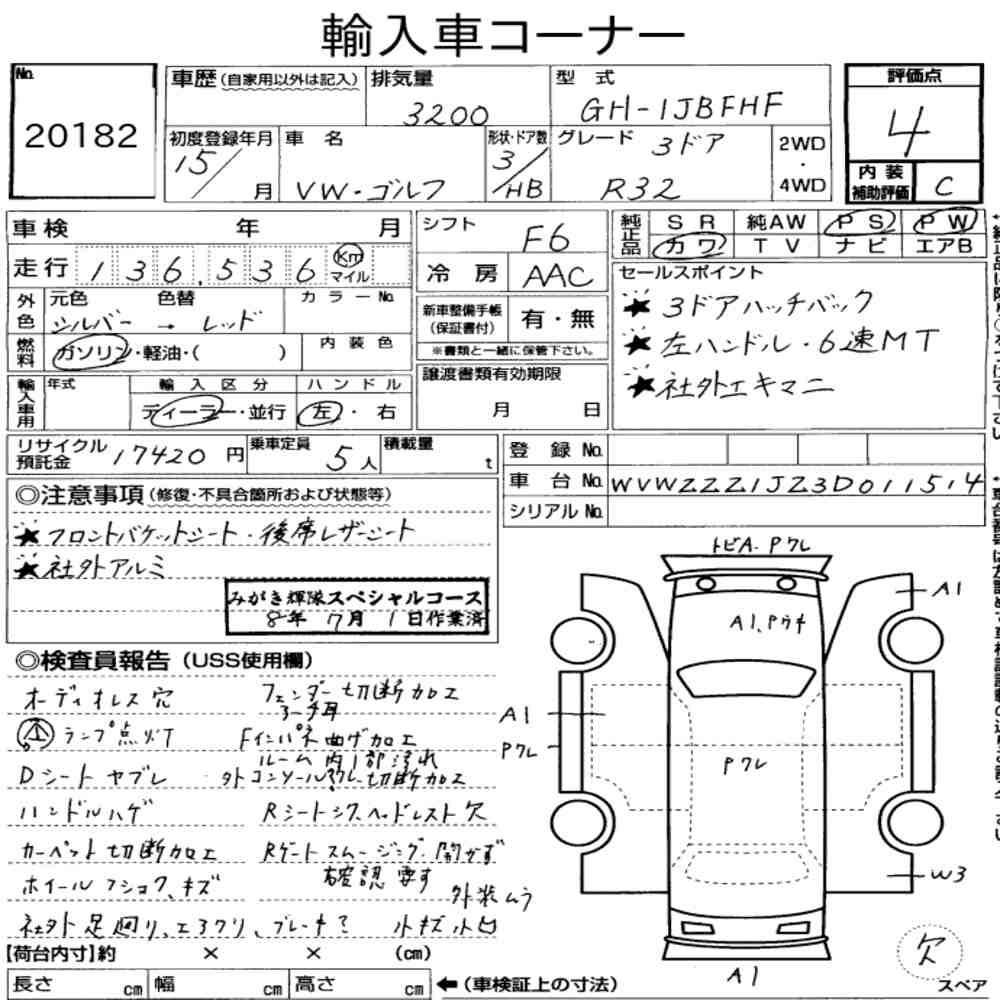 輸入車コーナー
No. 20182
車歴 (自家用以外は記入)
排気量 3200
型式 GH-1JBFHF
評価点 4
初度登録年月 15/ 月
車名 VW・ゴルフ
形状・ドア数 3/HB
グレード 3ドア R32
2WD・4WD
内装補助評価 C
車検 年 月
走行 136,536 Km マイル
シフト F6
冷房 AAC
純正品 SR 純AW PS PW
カワ TV ナビ エアB
外色 元色 シルバー → 色替 レッド カラーNo.
燃料 ガソリン・軽油・( ) 内装色
新車整備手帳(保証書付) 有・無
※書類と一緒に保管下さい。
セールスポイント
★3ドアハッチバック
★左ハンドル・6速MT
★社外エキマニ
輸入車用 年式 輸入区分 ディーラー・並行 ハンドル 左・右
譲渡書類有効期限 月 日
リサイクル預託金 17420円
乗車定員 5人
積載量 t
登録No.
車台No. WVWZZZ1JZ3D011514
シリアルNo.
◎注意事項(修復・不具合箇所および状態等)
★フロントバケットシート・後席レザーシート
★社外アルミ
みがき輝隊スペシャルコース
8年 7月 1日作業済
◎検査員報告(USS使用欄)
オーディオレス穴 フェンダー切断加工
ランプ点灯 Fインパネ曲げ加工
ルーム内1部汚れ
Dシートヤブレ 切断加工
ハンドルハゲ Rシートシワ、ヘッドレスト欠
カーペット切断加工 Rゲートスムージング、開かず
ホイールフショク、キズ 確認要す
外装ムラ
社外足廻り、エアクリ、ブレーキ? 小キズ小凹
トビA・Pワレ
A1
A1、Pウキ
A1
Pワレ
Pワレ
W3
A1
欠
スペア
【荷台内寸】約 × × (cm)
長さ cm 幅 cm 高さ cm ←(車検証上の寸法)